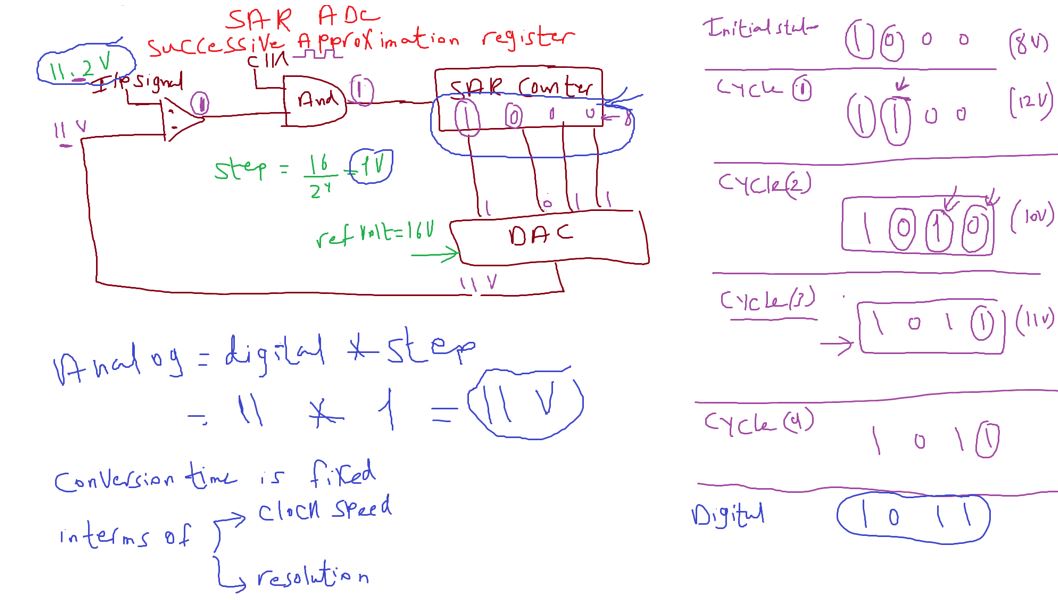 SAR ADC
Successive Approximation register
11.2 V
I/p signal
Clk
1
And
1
SAR Counter
1 0 0 0
11 V
step = 16/2⁴ = 1V
1 0 1 1
ref Volt = 16V
DAC
11 V
Analog = digital * step
= 11 * 1 = 11 V
Conversion time is fixed
interms of → clock speed
→ resolution
Initial stat
1 0 0 0 (8V)
Cycle 1
1 1 0 0 (12V)
Cycle(2)
1 0 1 0 (10V)
Cycle(3)
1 0 1 1 (11V)
Cycle(4)
1 0 1 1
Digital 1 0 1 1